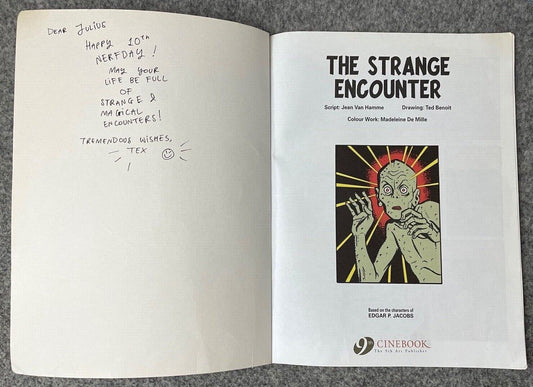 DEAR JULIUS
HAPPY 10TH
NERFDAY!
MAY YOUR
LIFE BE FULL
OF
STRANGE &
MAGICAL
ENCOUNTERS!
TREMENDOUS WISHES,
TEX
THE STRANGE
ENCOUNTER
Script: Jean Van Hamme Drawing: Ted Benoit
Colour Work: Madeleine De Mille
Based on the characters of
EDGAR P. JACOBS
9 CINEBOOK
The 9th Art Publisher